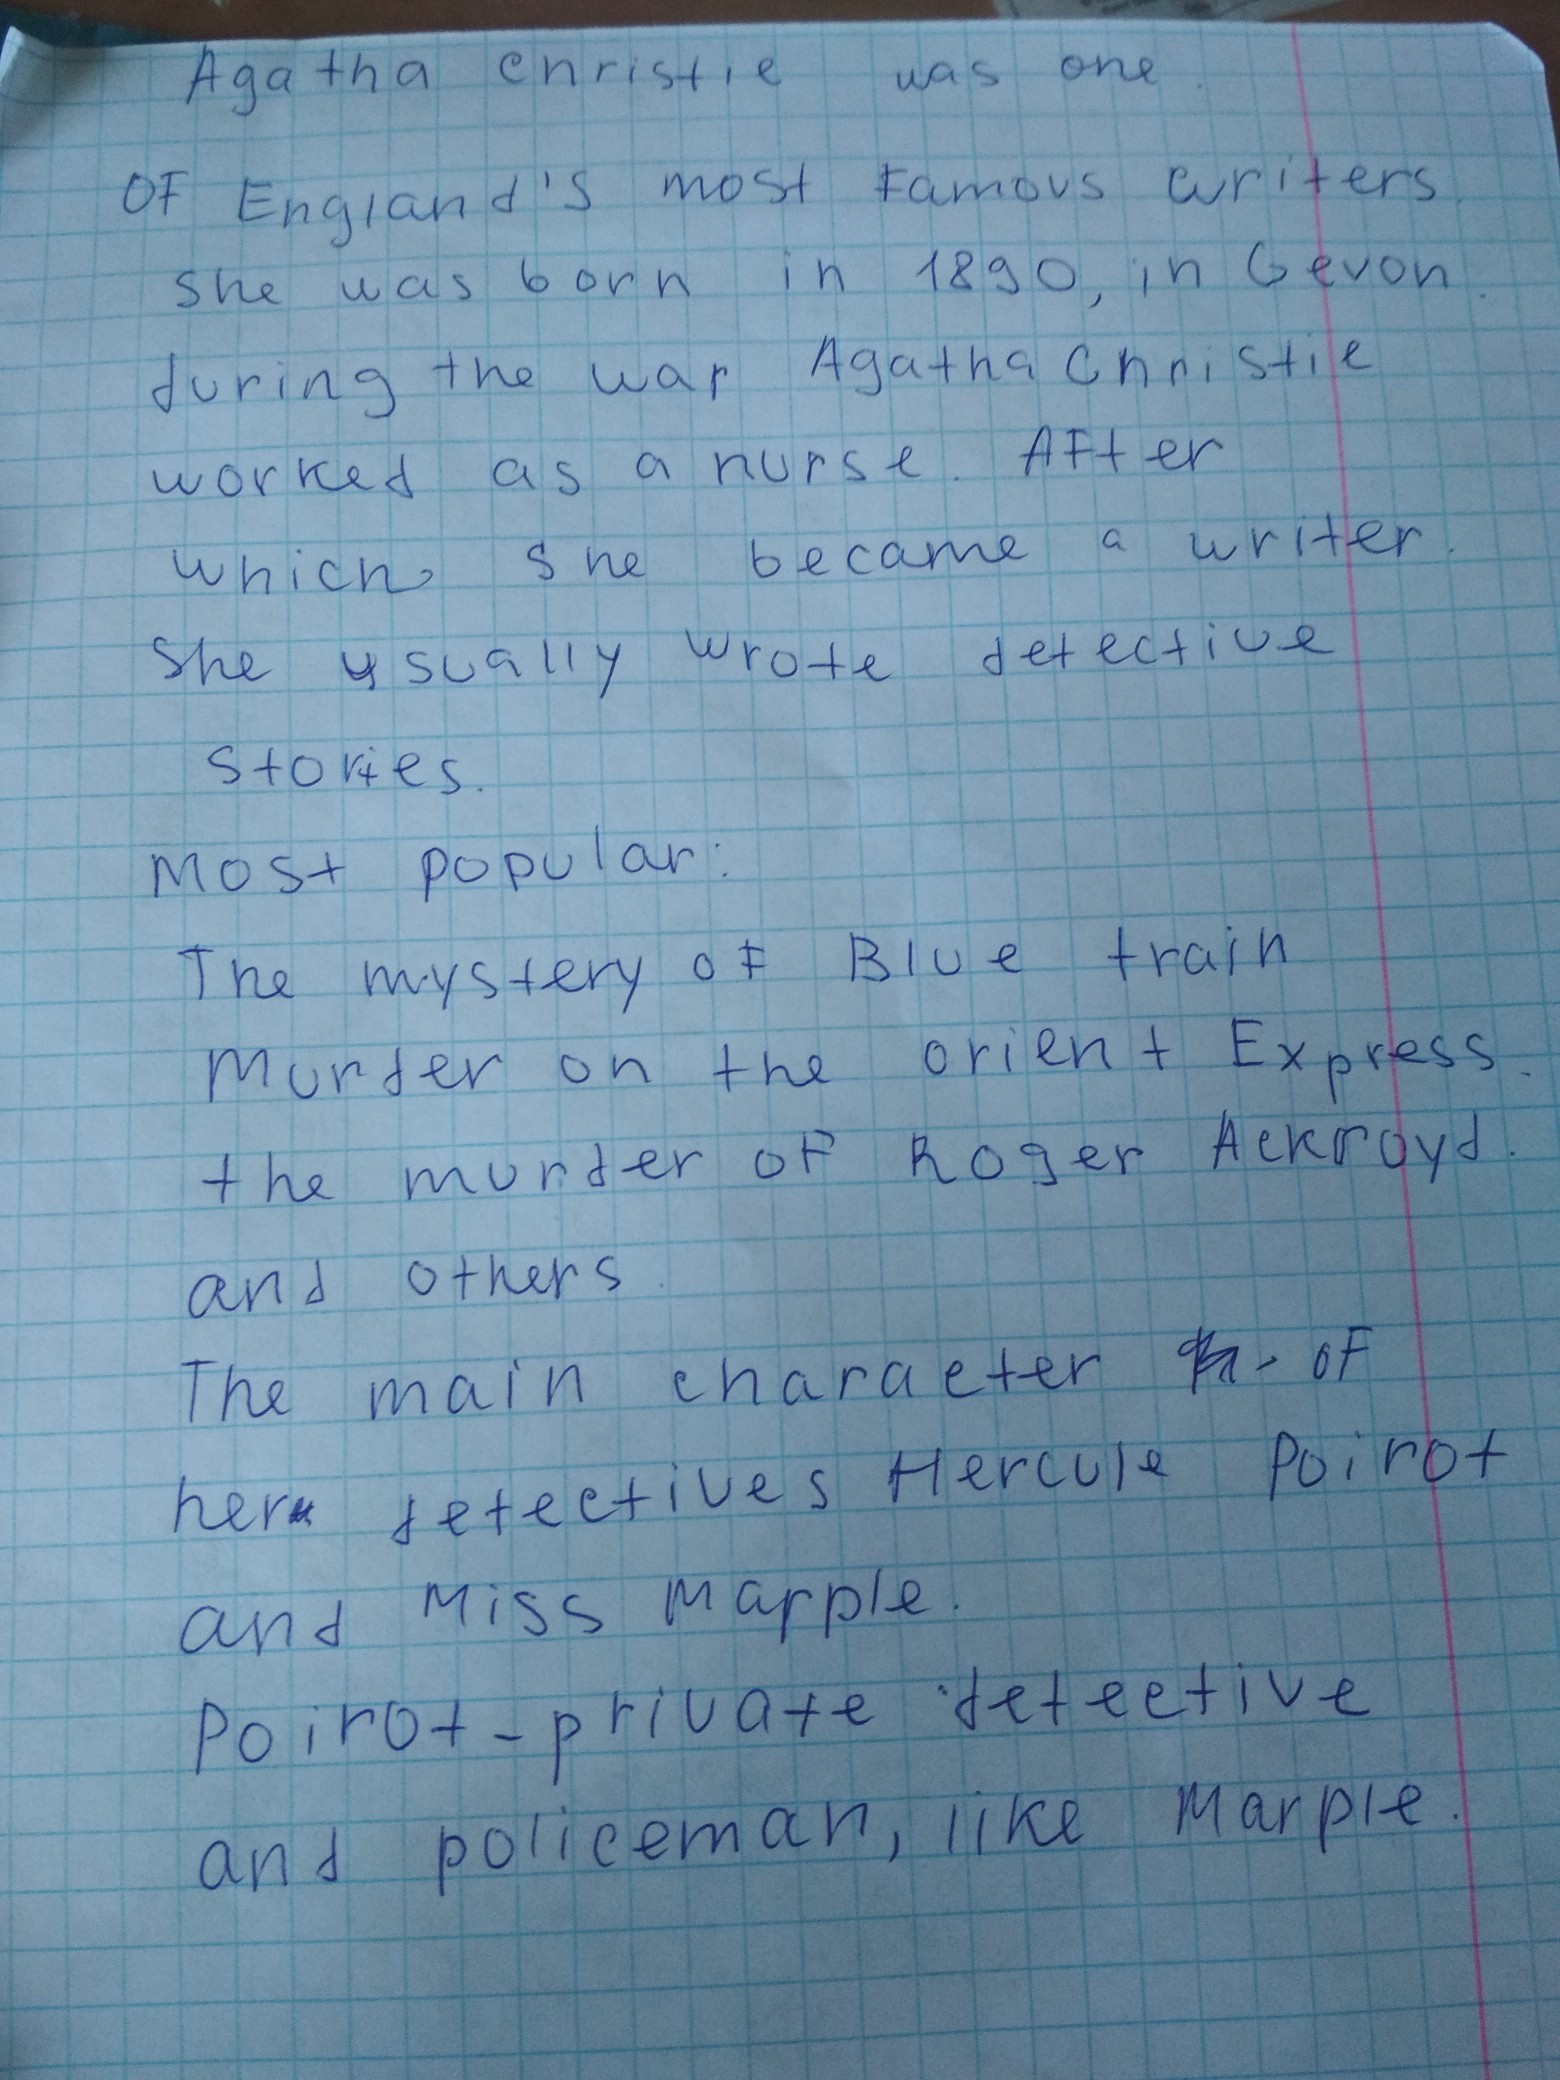 Agatha Christie was one
of England's most famous writers
she was born in 1890, in Gevon.
during the war Agatha Christie
worked as a nurse. After
which she became a writer.
She usually wrote detective
stories.
Most popular:
The mystery of Blue train
Murder on the orient Express.
the murder of Roger Ackroyd.
and others.
The main character of
her detectives Hercule Poirot
and Miss Marple.
Poirot-private detective
and policeman, like Marple.